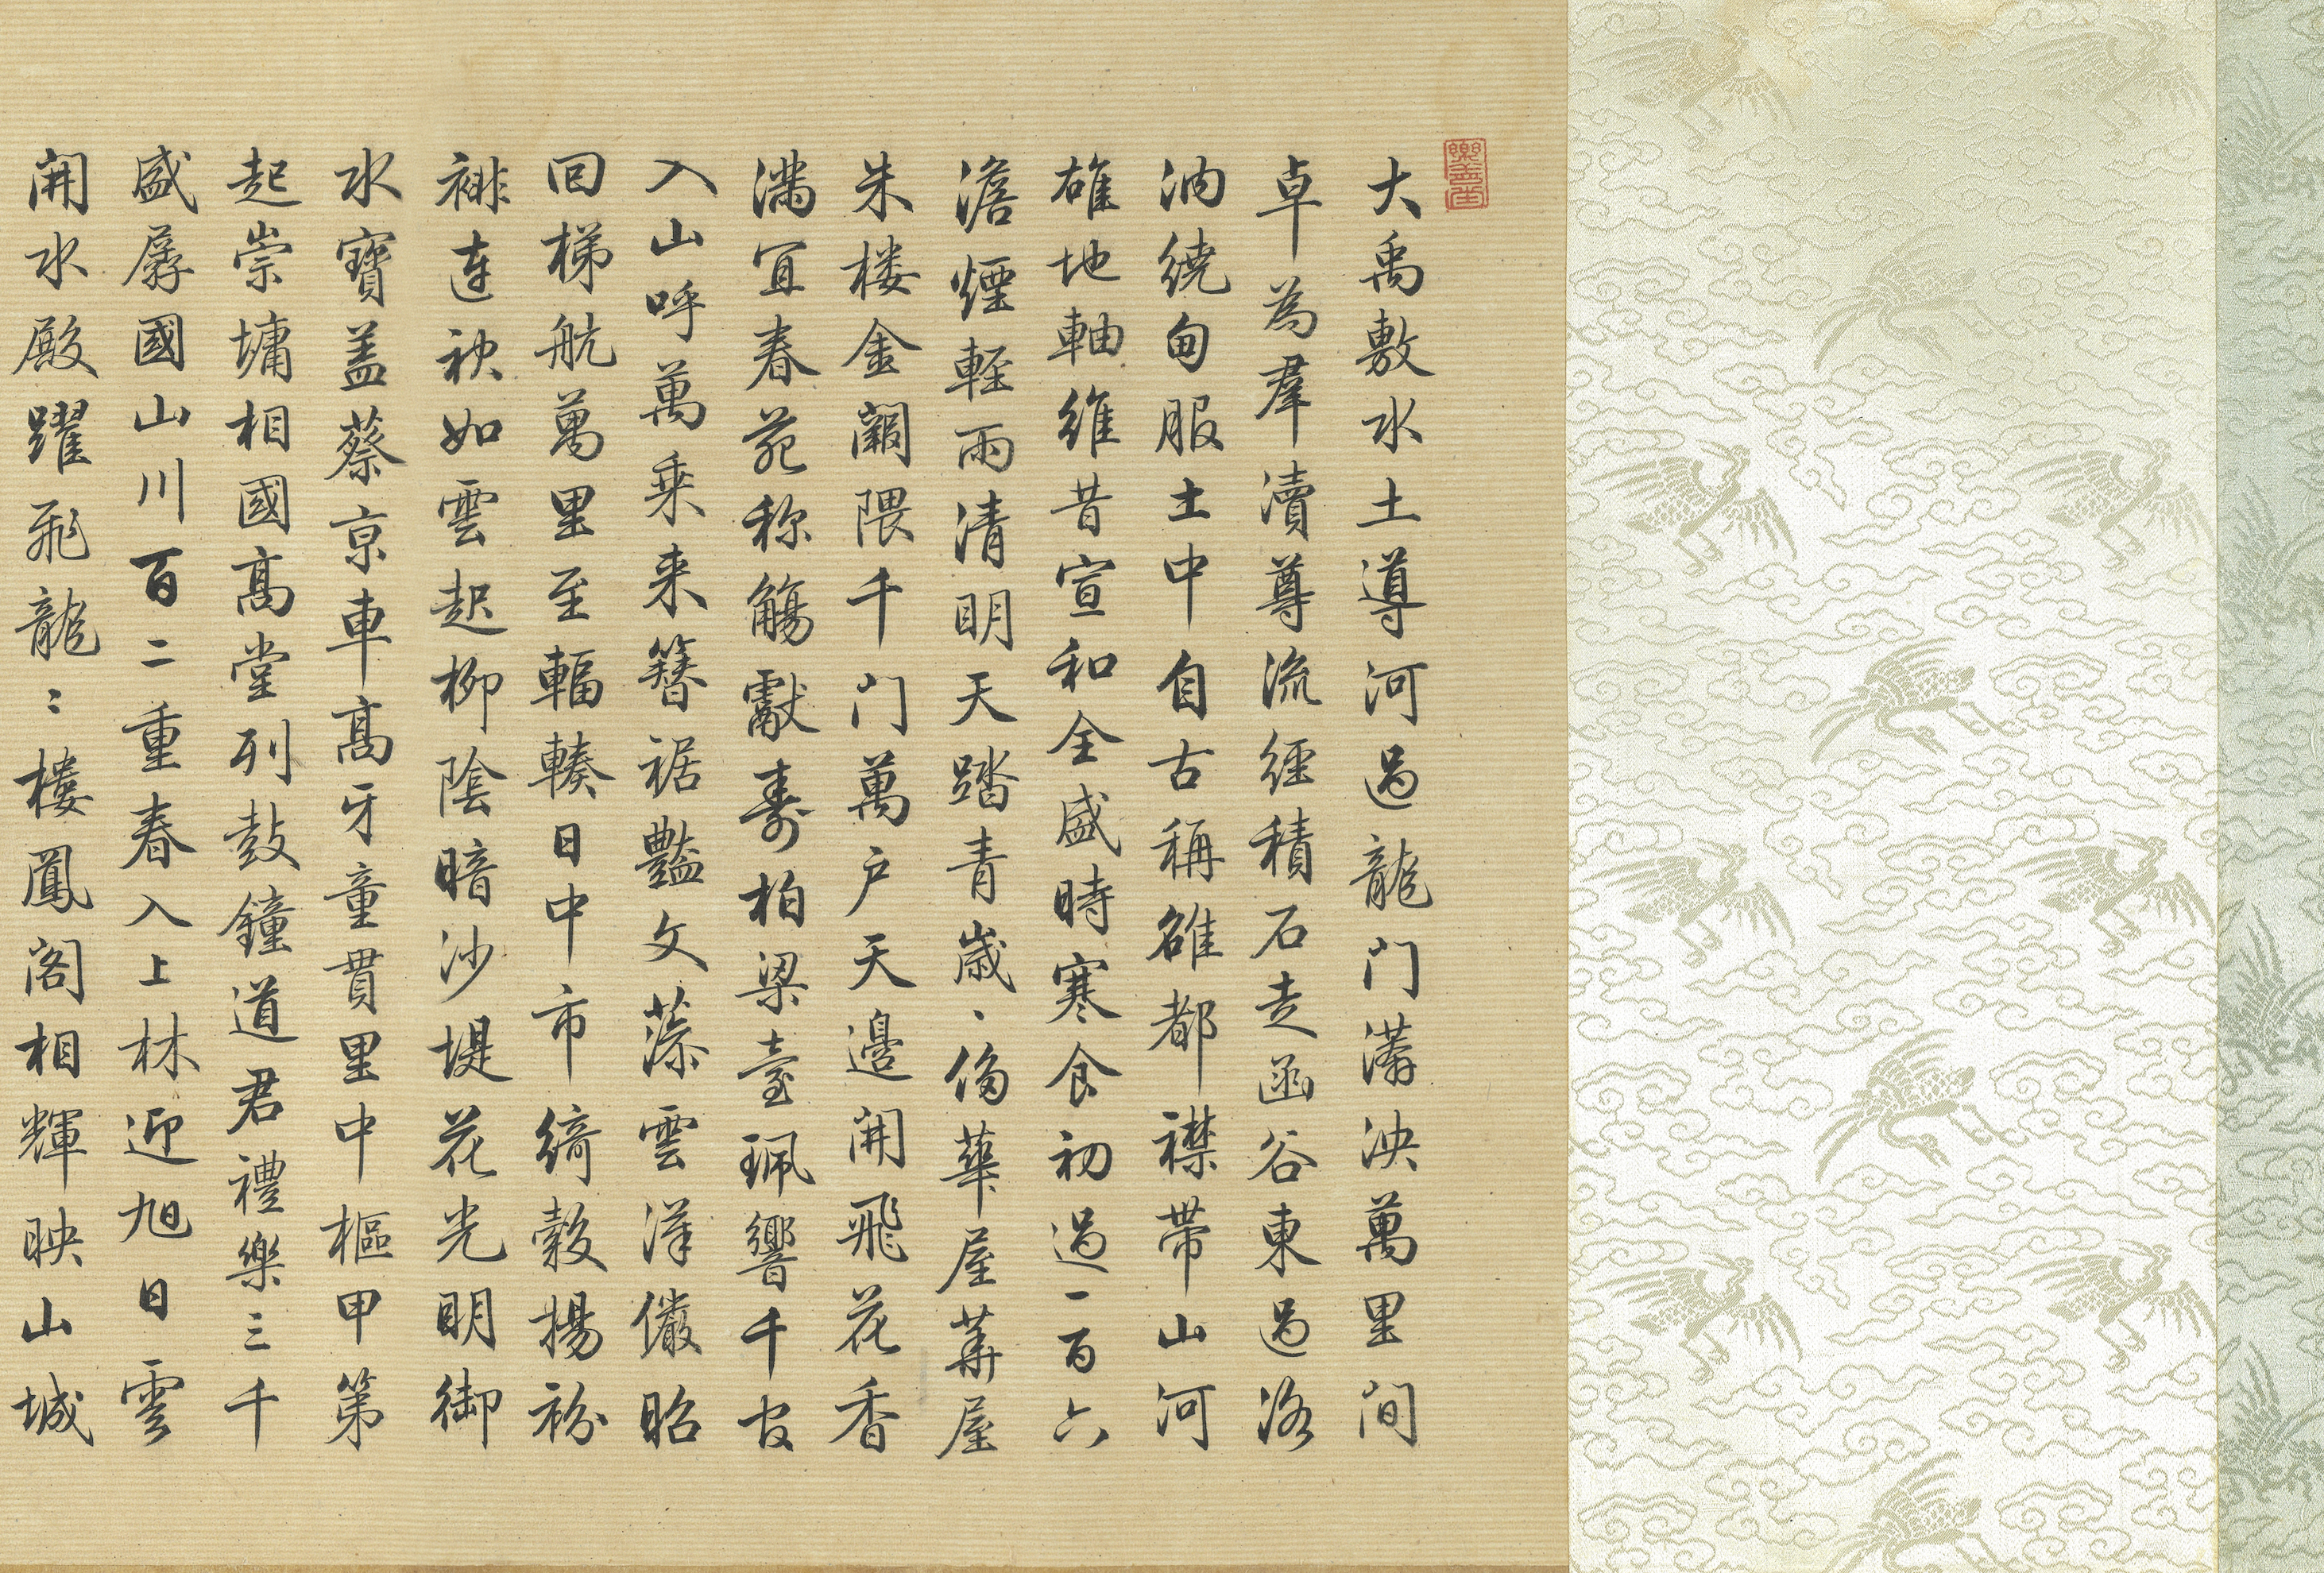 樂善堂
大禹敷水土導河過龍門滿泱萬里間
卓為羣瀆尊流經積石走函谷東過洛
汭繞甸服土中自古稱雒都襟帶山河
雄地軸維昔宣和全盛時寒食初過一百六
澹煙輕雨清明天踏青歲、侈華屋華屋
朱楼金闕隈千门萬户天邊開飛花香
滿宜春苑称觴獻壽柏梁臺珮響千官
入山呼萬乘来簪裾豔文藻雲漢儼昭
回梯航萬里至輻輳日中市綺縠揚袀
褂連袂如雲起柳陰暗沙堤花光明御
水寶盖蔡京車髙牙童貫里中樞甲第
起崇墉相國髙堂列鼓鐘道君禮樂三千
盛孱國山川百二重春入上林迎旭日雲
開水殿躍飛龍：樓鳳阁相輝映山城